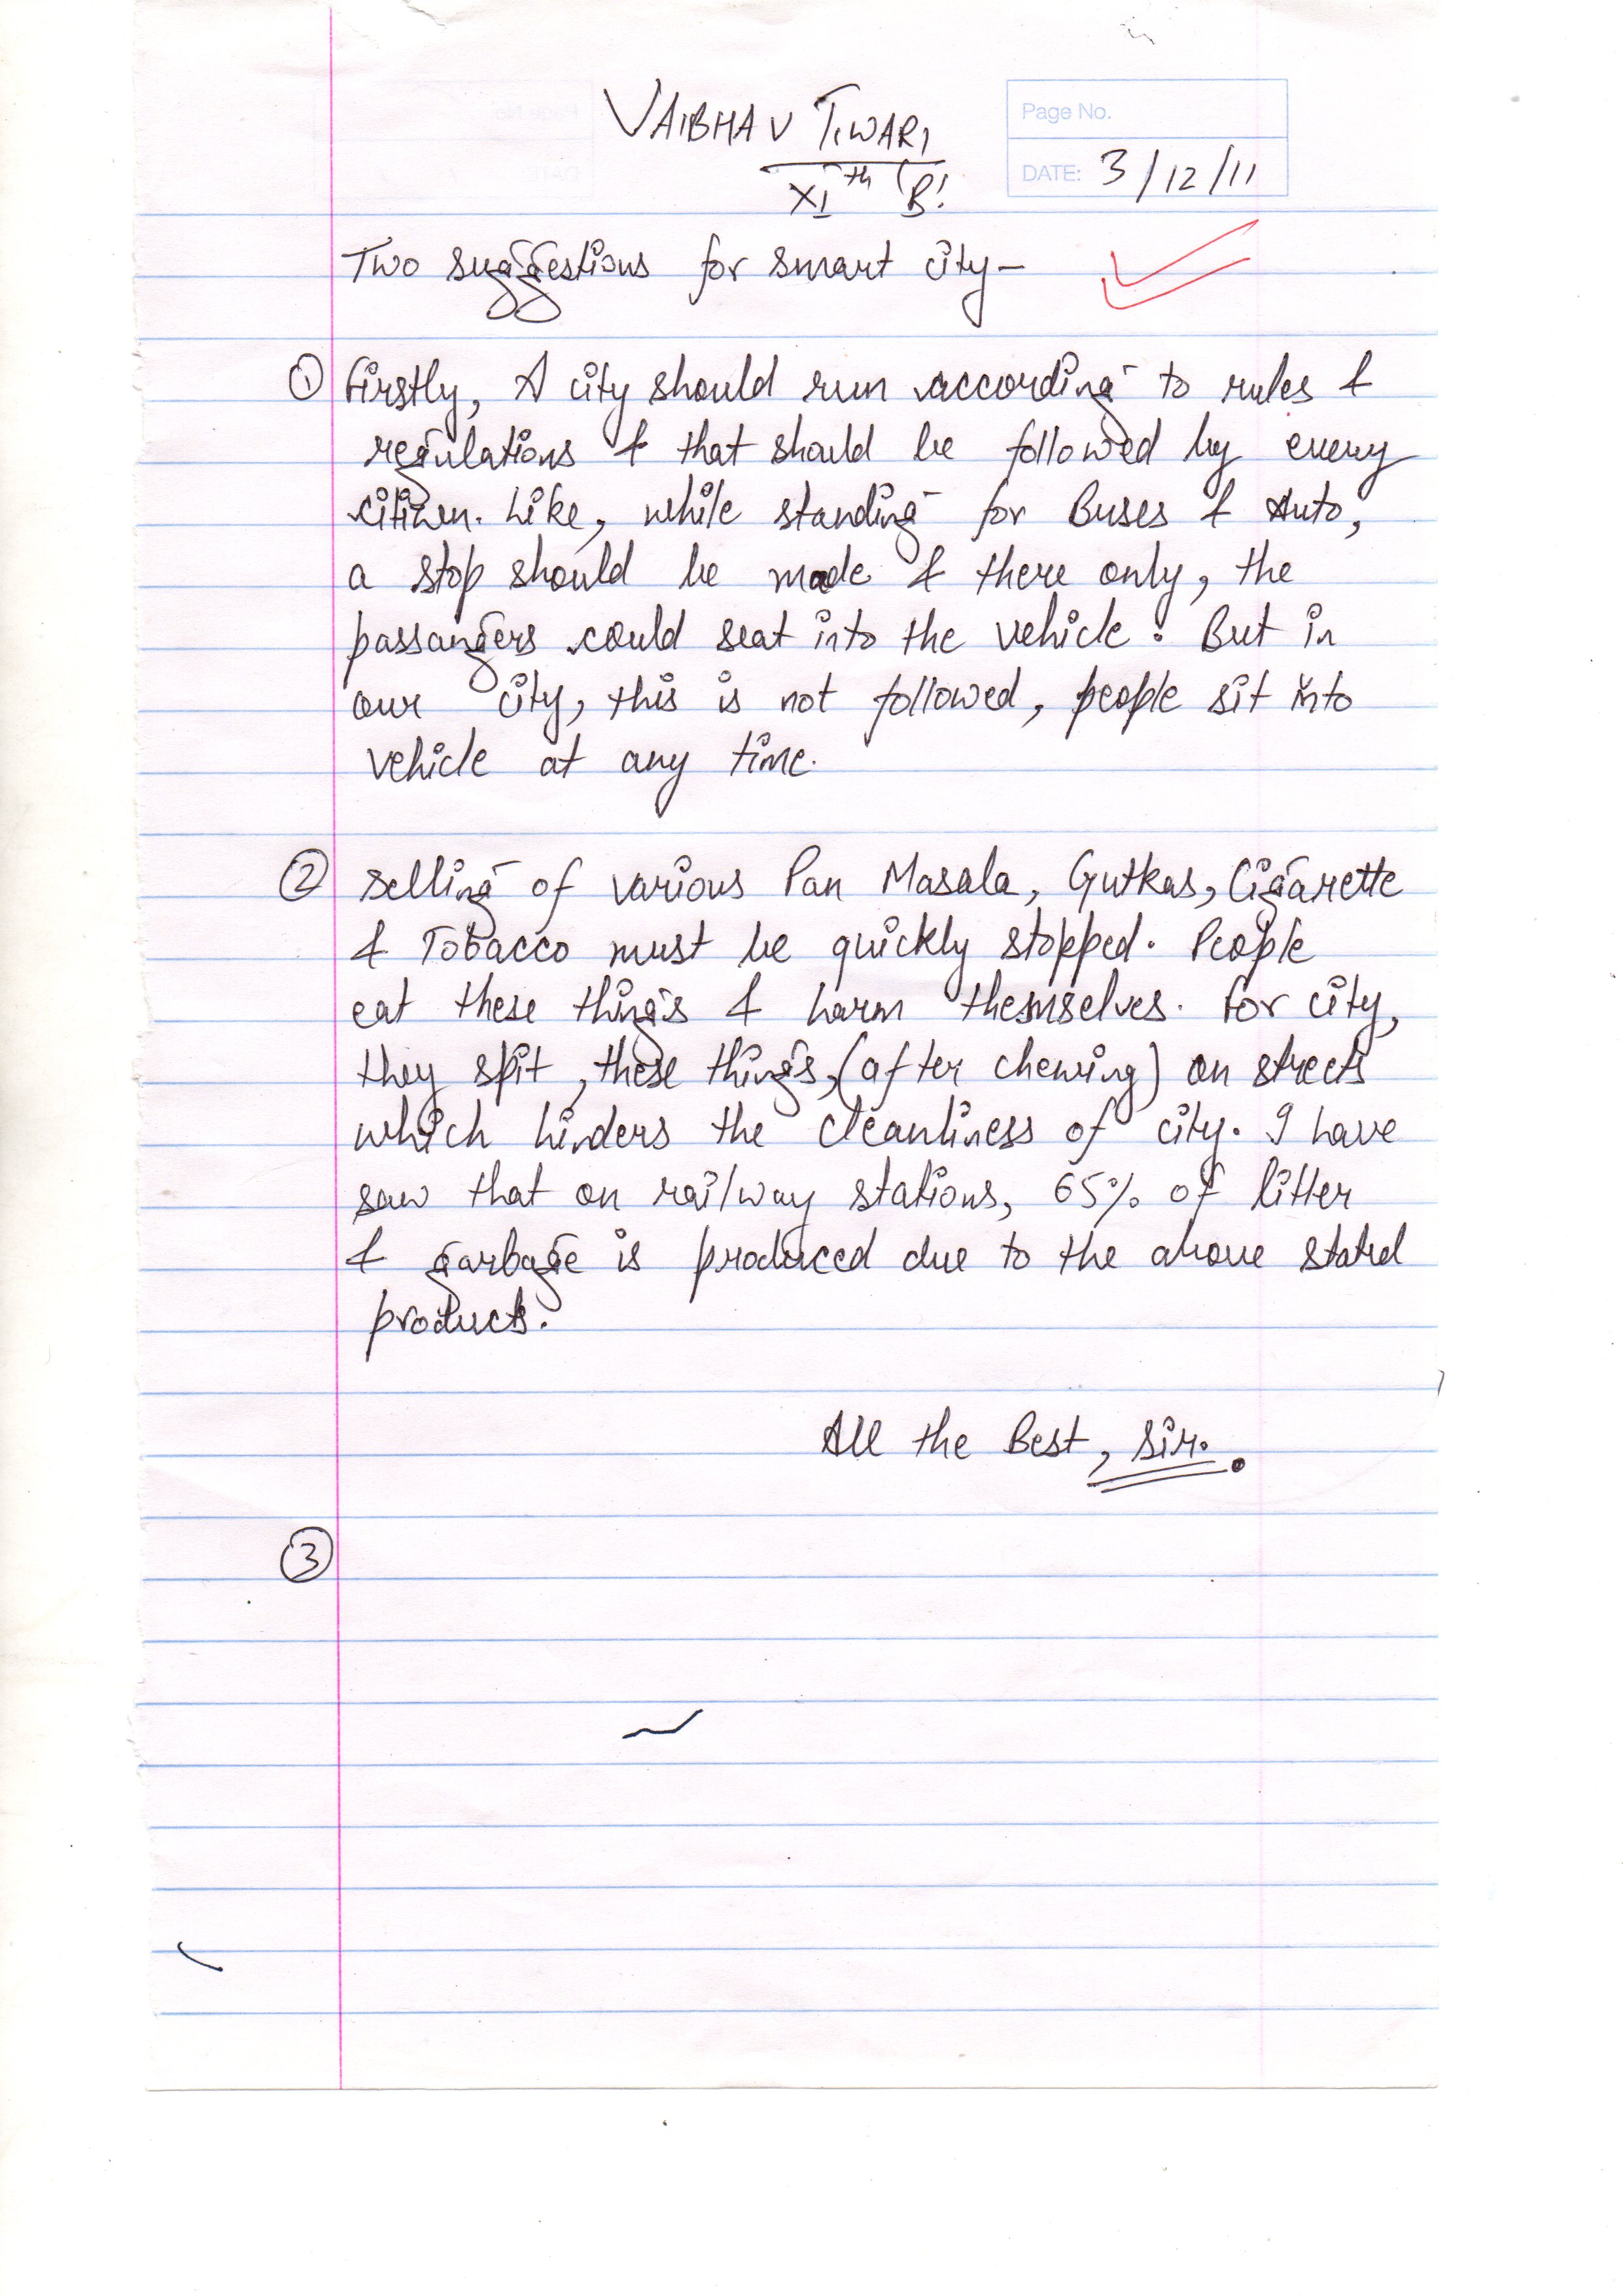 VAIBHAV TIWARI
Page No.
XIth 'B'
DATE: 3/12/11
Two suggestions for smart city-
① Firstly, A city should run according to rules &
regulations & that should be followed by every
citizen. Like, while standing for Buses & Auto,
a stop should be made & there only, the
passangers could seat into the vehicle. But in
our city, this is not followed, people sit into
vehicle at any time.
② Selling of various Pan Masala, Gutkas, Cigarette
& Tobacco must be quickly stopped. People
eat these things & harm themselves. For city,
they spit, these things, (after chewing) on streets
which hinders the cleanliness of city. I have
saw that on railway stations, 65% of litter
& garbage is produced due to the above stated
products.
All the Best, Sir.
③